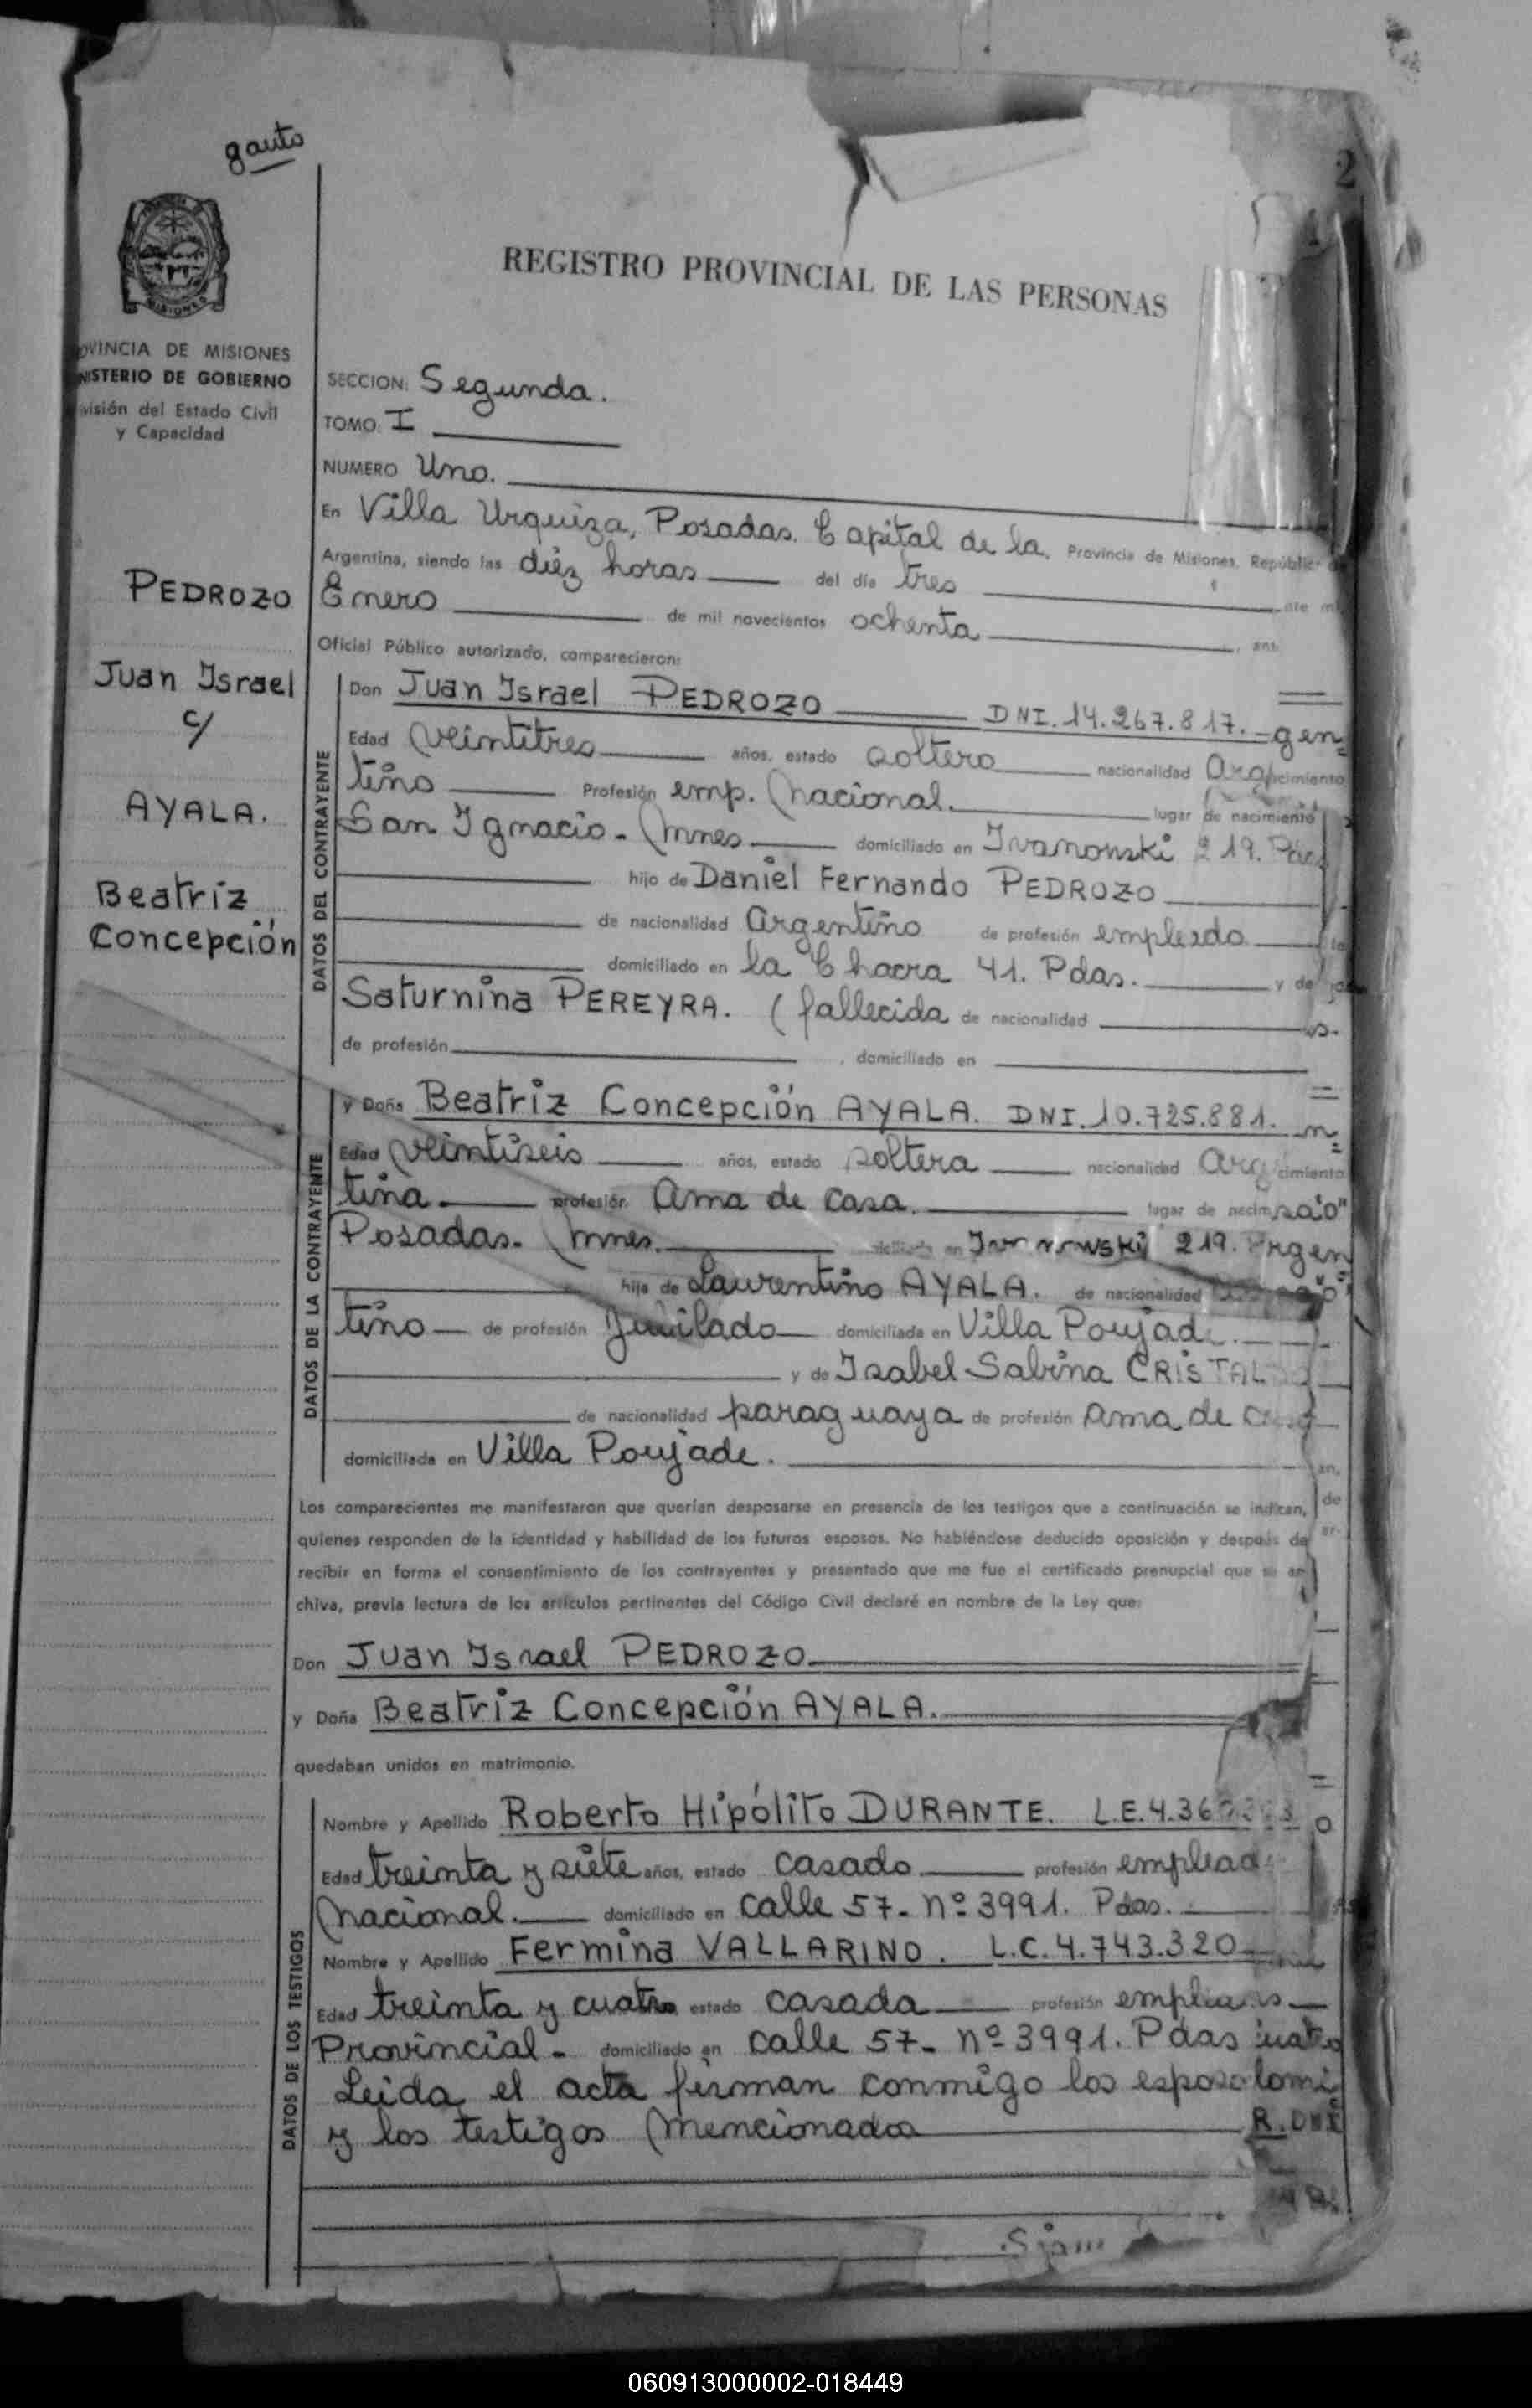 gauto
2
MISIONES
REGISTRO PROVINCIAL DE LAS PERSONAS
OVINCIA DE MISIONES
NISTERIO DE GOBIERNO
visión del Estado Civil
y Capacidad
PEDROZO
Juan Israel
c/
AYALA.
Beatriz
Concepción
SECCION: Segunda.
TOMO: I
NUMERO Uno.
En Villa Urquiza, Posadas. Capital de la, Provincia de Misiones, República
Argentina, siendo las diéz horas del día tres
Enero de mil novecientos ochenta
Oficial Público autorizado, comparecieron:
DATOS DEL CONTRAYENTE
Don Juan Israel PEDROZO DNI. 14.267.817.- gen=
Edad veintitres años, estado soltero nacionalidad Arg cimiento
tino Profesión emp. nacional. lugar de nacimiento
San Ignacio - mnes domiciliado en Ivanowski 219. Pdas
hijo de Daniel Fernando PEDROZO
de nacionalidad argentino de profesión empleado
domiciliado en la Chacra 41. Pdas. y de
Saturnina PEREYRA. (fallecida de nacionalidad
de profesión , domiciliado en
DATOS DE LA CONTRAYENTE
y Doña Beatriz Concepción AYALA. DNI. 10.725.881.
Edad veintiseis años, estado soltera nacionalidad Arg cimiento
tina profesión Ama de casa. lugar de nacim
Posadas. mnes. en Ivanowski 219. Argen
hija de Laurentino AYALA. de nacionalidad
tino de profesión Jubilado domiciliada en Villa Poujade.
y de Isabel Sabina CRISTAL
de nacionalidad paraguaya de profesión Ama de casa
domiciliada en Villa Poujade.
Los comparecientes me manifestaron que querían desposarse en presencia de los testigos que a continuación se indican,
quienes responden de la identidad y habilidad de los futuros esposos. No habiéndose deducido oposición y después de
recibir en forma el consentimiento de los contrayentes y presentado que me fue el certificado prenupcial que se ar
chiva, previa lectura de los artículos pertinentes del Código Civil declaré en nombre de la Ley que:
Don Juan Israel PEDROZO
y Doña Beatriz Concepción AYALA.
quedaban unidos en matrimonio.
DATOS DE LOS TESTIGOS
Nombre y Apellido Roberto Hipólito DURANTE. L.E.
Edad treinta y siete años, estado casado profesión emplead
nacional. domiciliado en calle 57- nº 3991. Pdas.
Nombre y Apellido Fermina VALLARINO. L.C. 4.743.320
Edad treinta y cuatro estado casada profesión
Provincial - domiciliado en calle 57- nº 3991. Pdas
Leida el acta firman conmigo los esposo
y los testigos mencionados
R. DNI
060913000002-018449